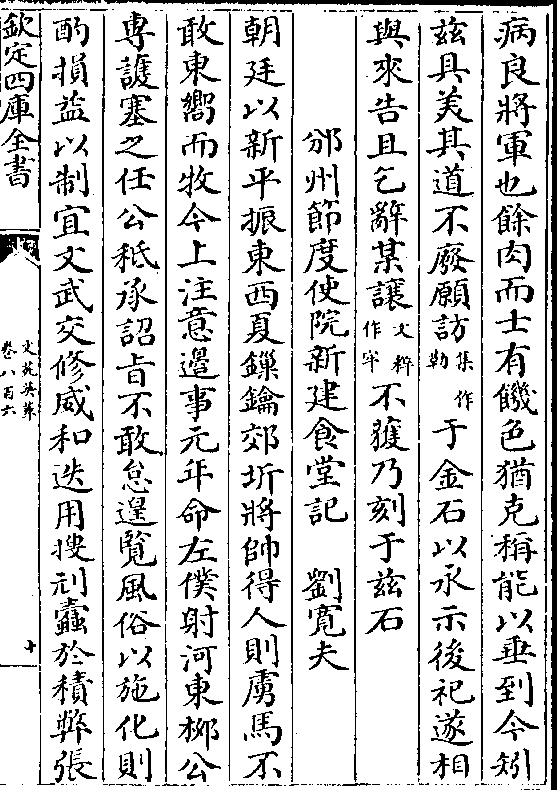 病良將軍也餘肉而士有饑色猶克稱能以垂到今矧
兹具美其道不廢願訪集作勒于金石以永示後祀遂相
與來告且乞辭某讓文粹作牢不獲乃刻于兹石
邠州節度使院新建食堂記 劉寛夫
朝廷以新平振東西夏鏁鑰郊圻將帥得人則虜馬不
敢東嚮而牧今上注意邊事元年命左僕射河東栁公
専護塞之任公秪承詔旨不敢怠遑覧風俗以施化則
酌損益以制宜文武交修威和迭用搜刓蠧於積弊張
欽定四庫全書
文苑英華
卷八百六
十